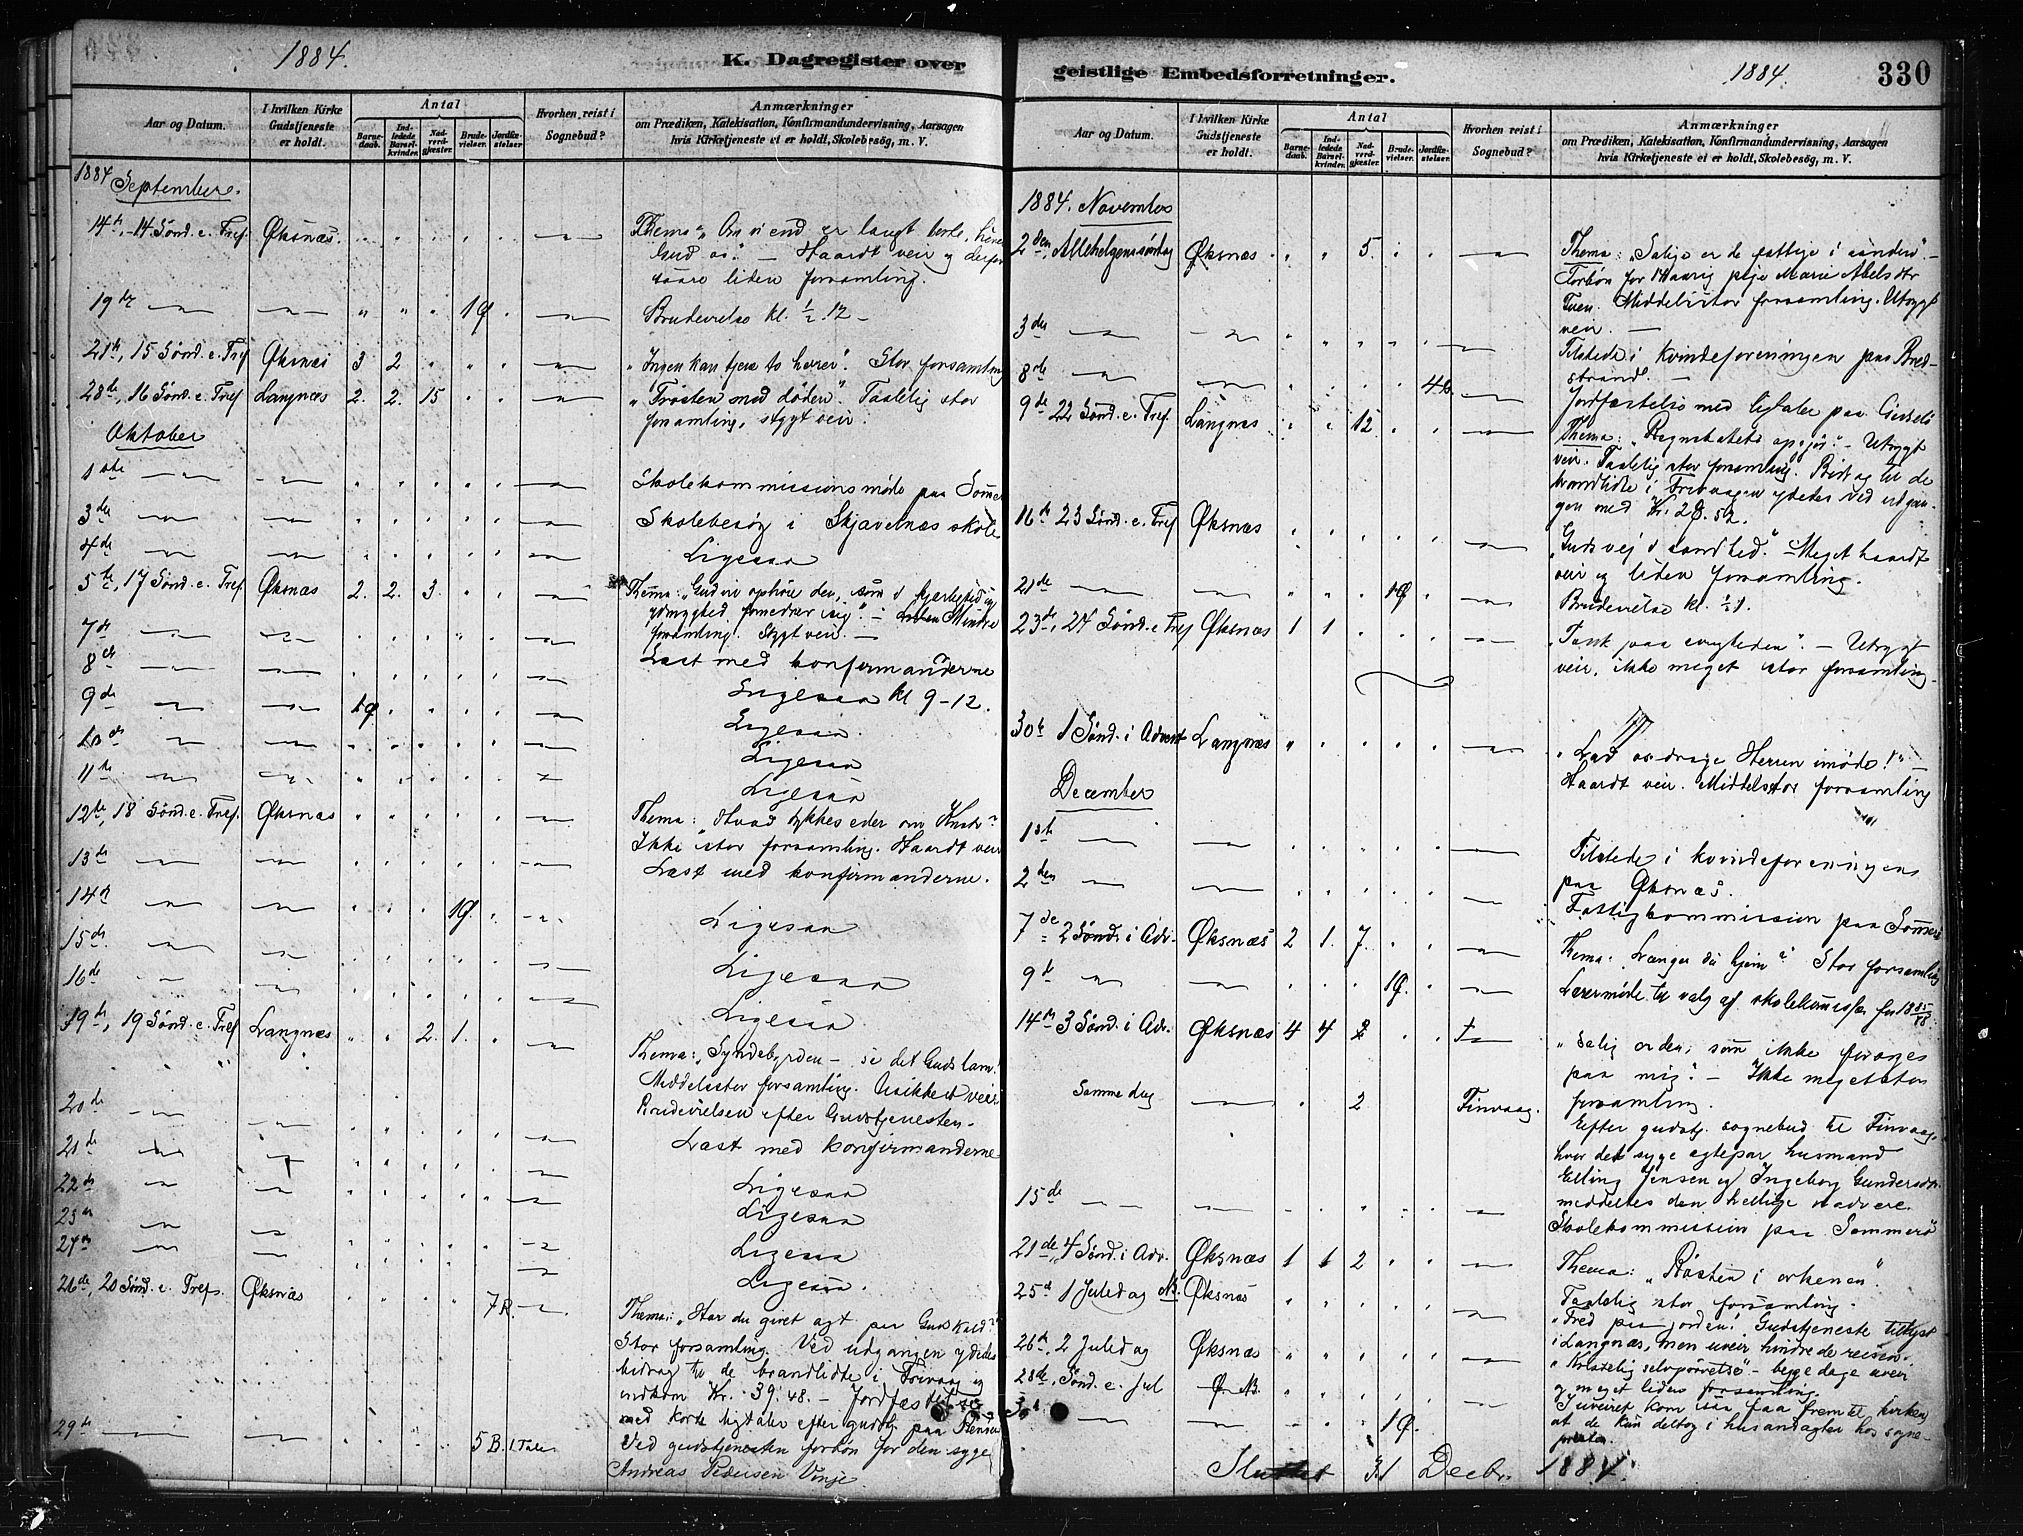 1884.
K. Dagregister over
Aar og Datum.
I hvilken Kirke Gudstjeneste er holdt.
Antal
Barnedaab.
Indledede Barselkvinder.
Nadverdgjæster.
Brudevielser.
Jordfæstelser.
Hvorhen reist i Sognebud?
Anmærkninger
om Prædiken, Katekisation, Konfirmandundervisning, Aarsagen
hvis Kirketjeneste ei er holdt, Skolebesög, m. V.
1884 September.
14de, 14 Sønd. e. Tref. Øksnæs. Thema: "Om vi end er langt borte, hører
Gud os". — Haardt veir og derfor
saare liden forsamling.
19de 1 Q Brudevielse kl. ½ 12 —
21de, 15 Sønd. e. Tref Øksnæs 3 2 "Ingen kan tjene to herrer". Stor forsamling
28de, 16 Sønd. e. Tref Langnæs 2. 2. 15 "Trøsten mod døden". Taalelig stor
forsamling, stygt veir.
Oktober
1ste Skolekommissionsmøde paa
3de Skolebesøg i Skjavelnæs skole
4de Ligesaa
5te, 17 Sønd. e. Tref. Øksnæs 2. 2. 3. Thema: "Gud vil ophøie den, som i kjærlighed og
ydmyghed fornedrer sig". — Mindre
forsamling. Stygt veir. —
7de Læst med konfirmanderne
8de Ligesaa kl 9–12.
9de 1 Q Ligesaa.
10de Ligesaa
11te Ligesaa
12te, 18 Sønd. e. Tref. Øksnæs Thema: "Hvad tykkes eder om Krist?"
Ikke stor forsamling. Haardt veir
13de Læst med konfirmanderne.
14de 1 Q. Ligesaa
15de Ligesaa
16de Ligesaa.
19de, 19 Sønd. e. Tref Langnæs 2. 1. Thema: "Syndebyrden — se det Guds lam!
Middelsstor forsamling. Usikkert veir
Brudevielsen efter Gudstjenesten.
20de Læst med konfirmanderne
21de Ligesaa
22de Ligesaa
23de Ligesaa
24de Ligesaa.
26de, 20 Sønd. e. Tref. Øksnæs 7 R. Thema: "Har du givet agt paa Guds kald?"
Stor forsamling. Ved udgangen ydedes
bidrag til de brandlidte i og
indkom Kr. 39.48. — Jordfæstelse
med korte ligtaler efter gudstj. paa
29de 5 B. 1 Tale Ved gudstjenesten forbøn for den syge
Andreas Pedersen Vinje.
geistlige Embedsforretninger.
1884.
330
Aar og Datum.
I hvilken Kirke Gudstjeneste er holdt.
Antal
Barnedaab.
Indledede Barselkvinder.
Nadverdgjæster.
Brudevielser.
Jordfæstelser.
Hvorhen reist i Sognebud?
Anmærkninger
om Prædiken, Katekisation, Konfirmandundervisning, Aarsagen
hvis Kirketjeneste ei er holdt, Skolebesög, m. V.
1884. November
2den, Allehelgenssøndag Øksnæs 5. Thema: "Salige er de fattige i aanden". —
Forbøn for pige Marie Abelsdtr
Tuen. Middelsstor forsamling. Utrygt
veir. —
3die Tilstede i Kvindeforeningen paa Bred-
strand. —
8de 4 Jordfæstelse med ligtaler paa
9de 22 Sønd. e. Tref. Langnæs 12 Thema: "Regnskabets opgjør". — Utrygt
veir. Taalelig stor forsamling. Bidrag til de
brandlidte i ydedes ved udgan-
gen med Kr. 28.52.
16de 23 Sønd. e. Tref Øksnæs "Guds vej i sandhed". — Meget haardt
veir og liden forsamling.
21de 1 Q Brudevielse kl. ½ 1.
23de, 24 Sønd. e. Tref Øksnæs 1 1 "Tænk paa evigheden". — Utrygt
veir, ikke meget stor forsamling.
30te 1 Sønd. i Advent Langnæs "Lad os drage Herren imøde!" —
Haardt veir. Middelstor forsamling
December
1ste Tilstede i kvindeforeningen
paa Øksnæs.
2den Fattigkommission paa
7de 2 Sønd. i Adv. Øksnæs 2 1. 7 Thema: "Længes du hjem"? Stor forsamling
9de 1 Q. Læremøde til valg af for 1885/88
14de 3 Sønd. i Adv. Øksnæs 4 4 2 "Salig er den, som ikke forarges
paa mig". — Ikke meget stor
forsamling.
Samme dag 2 Finvaag. Efter gudstj. sognebud til Finvaag,
hvor det syge ægtepar husmand
Elling Jensen og Ingeborg Gundersdtr
meddeltes den hellige nadvere.
15de Skolekommission paa Sommerø
21de, 4 Sønd. i Adv. Øksnæs 1 1 2 Thema: "Røsten i ørkenen".
Taalelig stor forsamling.
25de 1 Juledag NB. Øksnæs "Fred paa jorden! Gudstjeneste tillyst
i Langnæs, men uveir hindrede reisen.
26de, 2 Juledag Øksnæs "Kristelig selvprøvelse" — begge dage uveir
og meget liden forsamling.
28de, Sønd. e. Jul Ø. NB. I uveiret kom ikke frem til kirken,
at de kun deltog i husandagten hos sogne-
præsten.
31 1 Q.
Sluttet 31 Decbr. 1884.